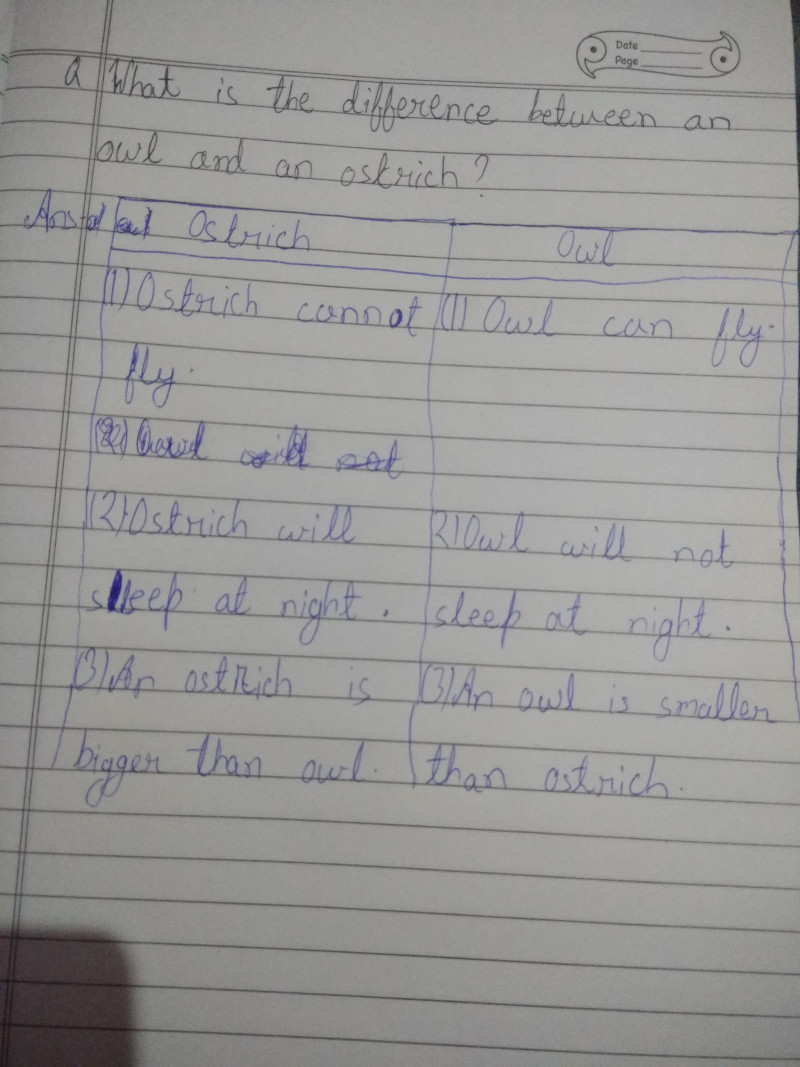 Date
Page
Q What is the difference between an
owl and an ostrich?
Ans Ostrich Owl
(1) Ostrich cannot (1) Owl can fly.
fly.
(2) Ostrich will 2) Owl will not
sleep at night. sleep at night.
(3) An ostrich is (3) An owl is smaller
bigger than owl. than ostrich.